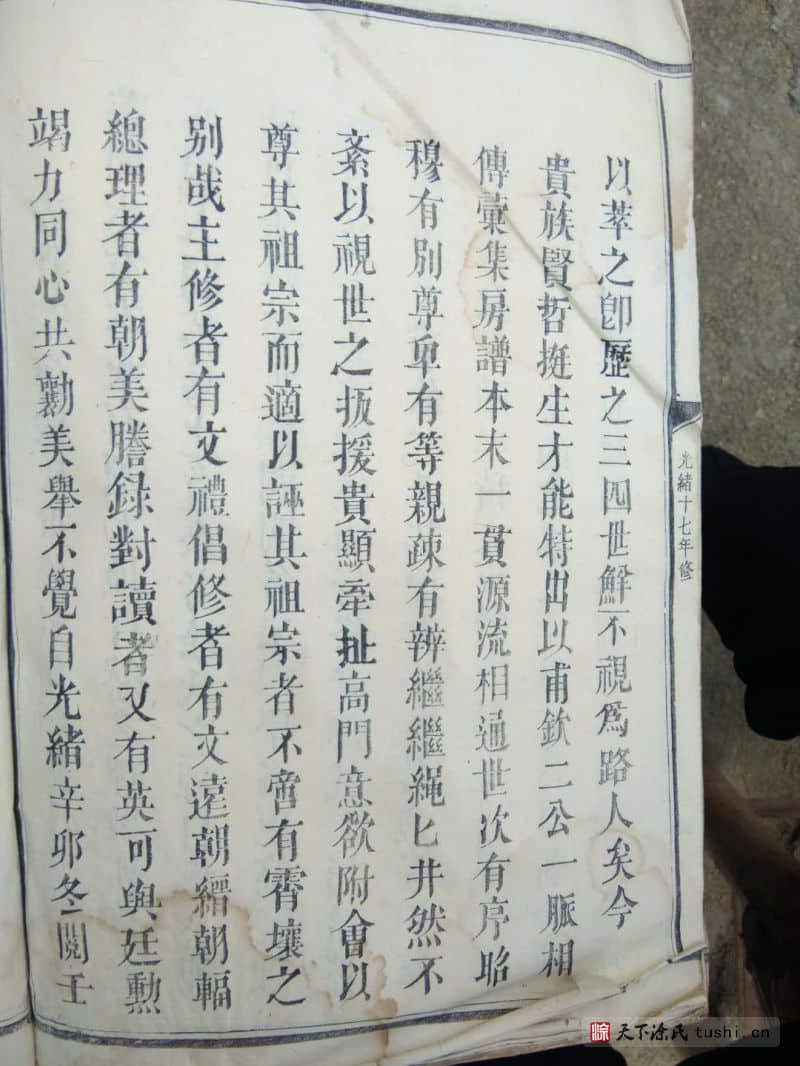 光緒十七年修
以萃之卽歷之三四世鮮不視爲路人矣今
貴族賢哲挺生才能特出以甫欽二公一脈相
傳彙集房譜本末一貫源流相通世次有序昭
穆有別尊卑有等親疎有辨繼繼繩匕井然不
紊以視世之扳援貴顯牽扯高門意欲附會以
尊其祖宗而適以誣其祖宗者不啻有霄壤之
别哉主修者有文禮倡修者有文遠朝縉朝輻
總理者有朝美謄録對讀者又有英可與廷勲
竭力同心共勷美舉不覺自光緒辛卯冬閱壬
涂 天下涂氏 tushi.cn